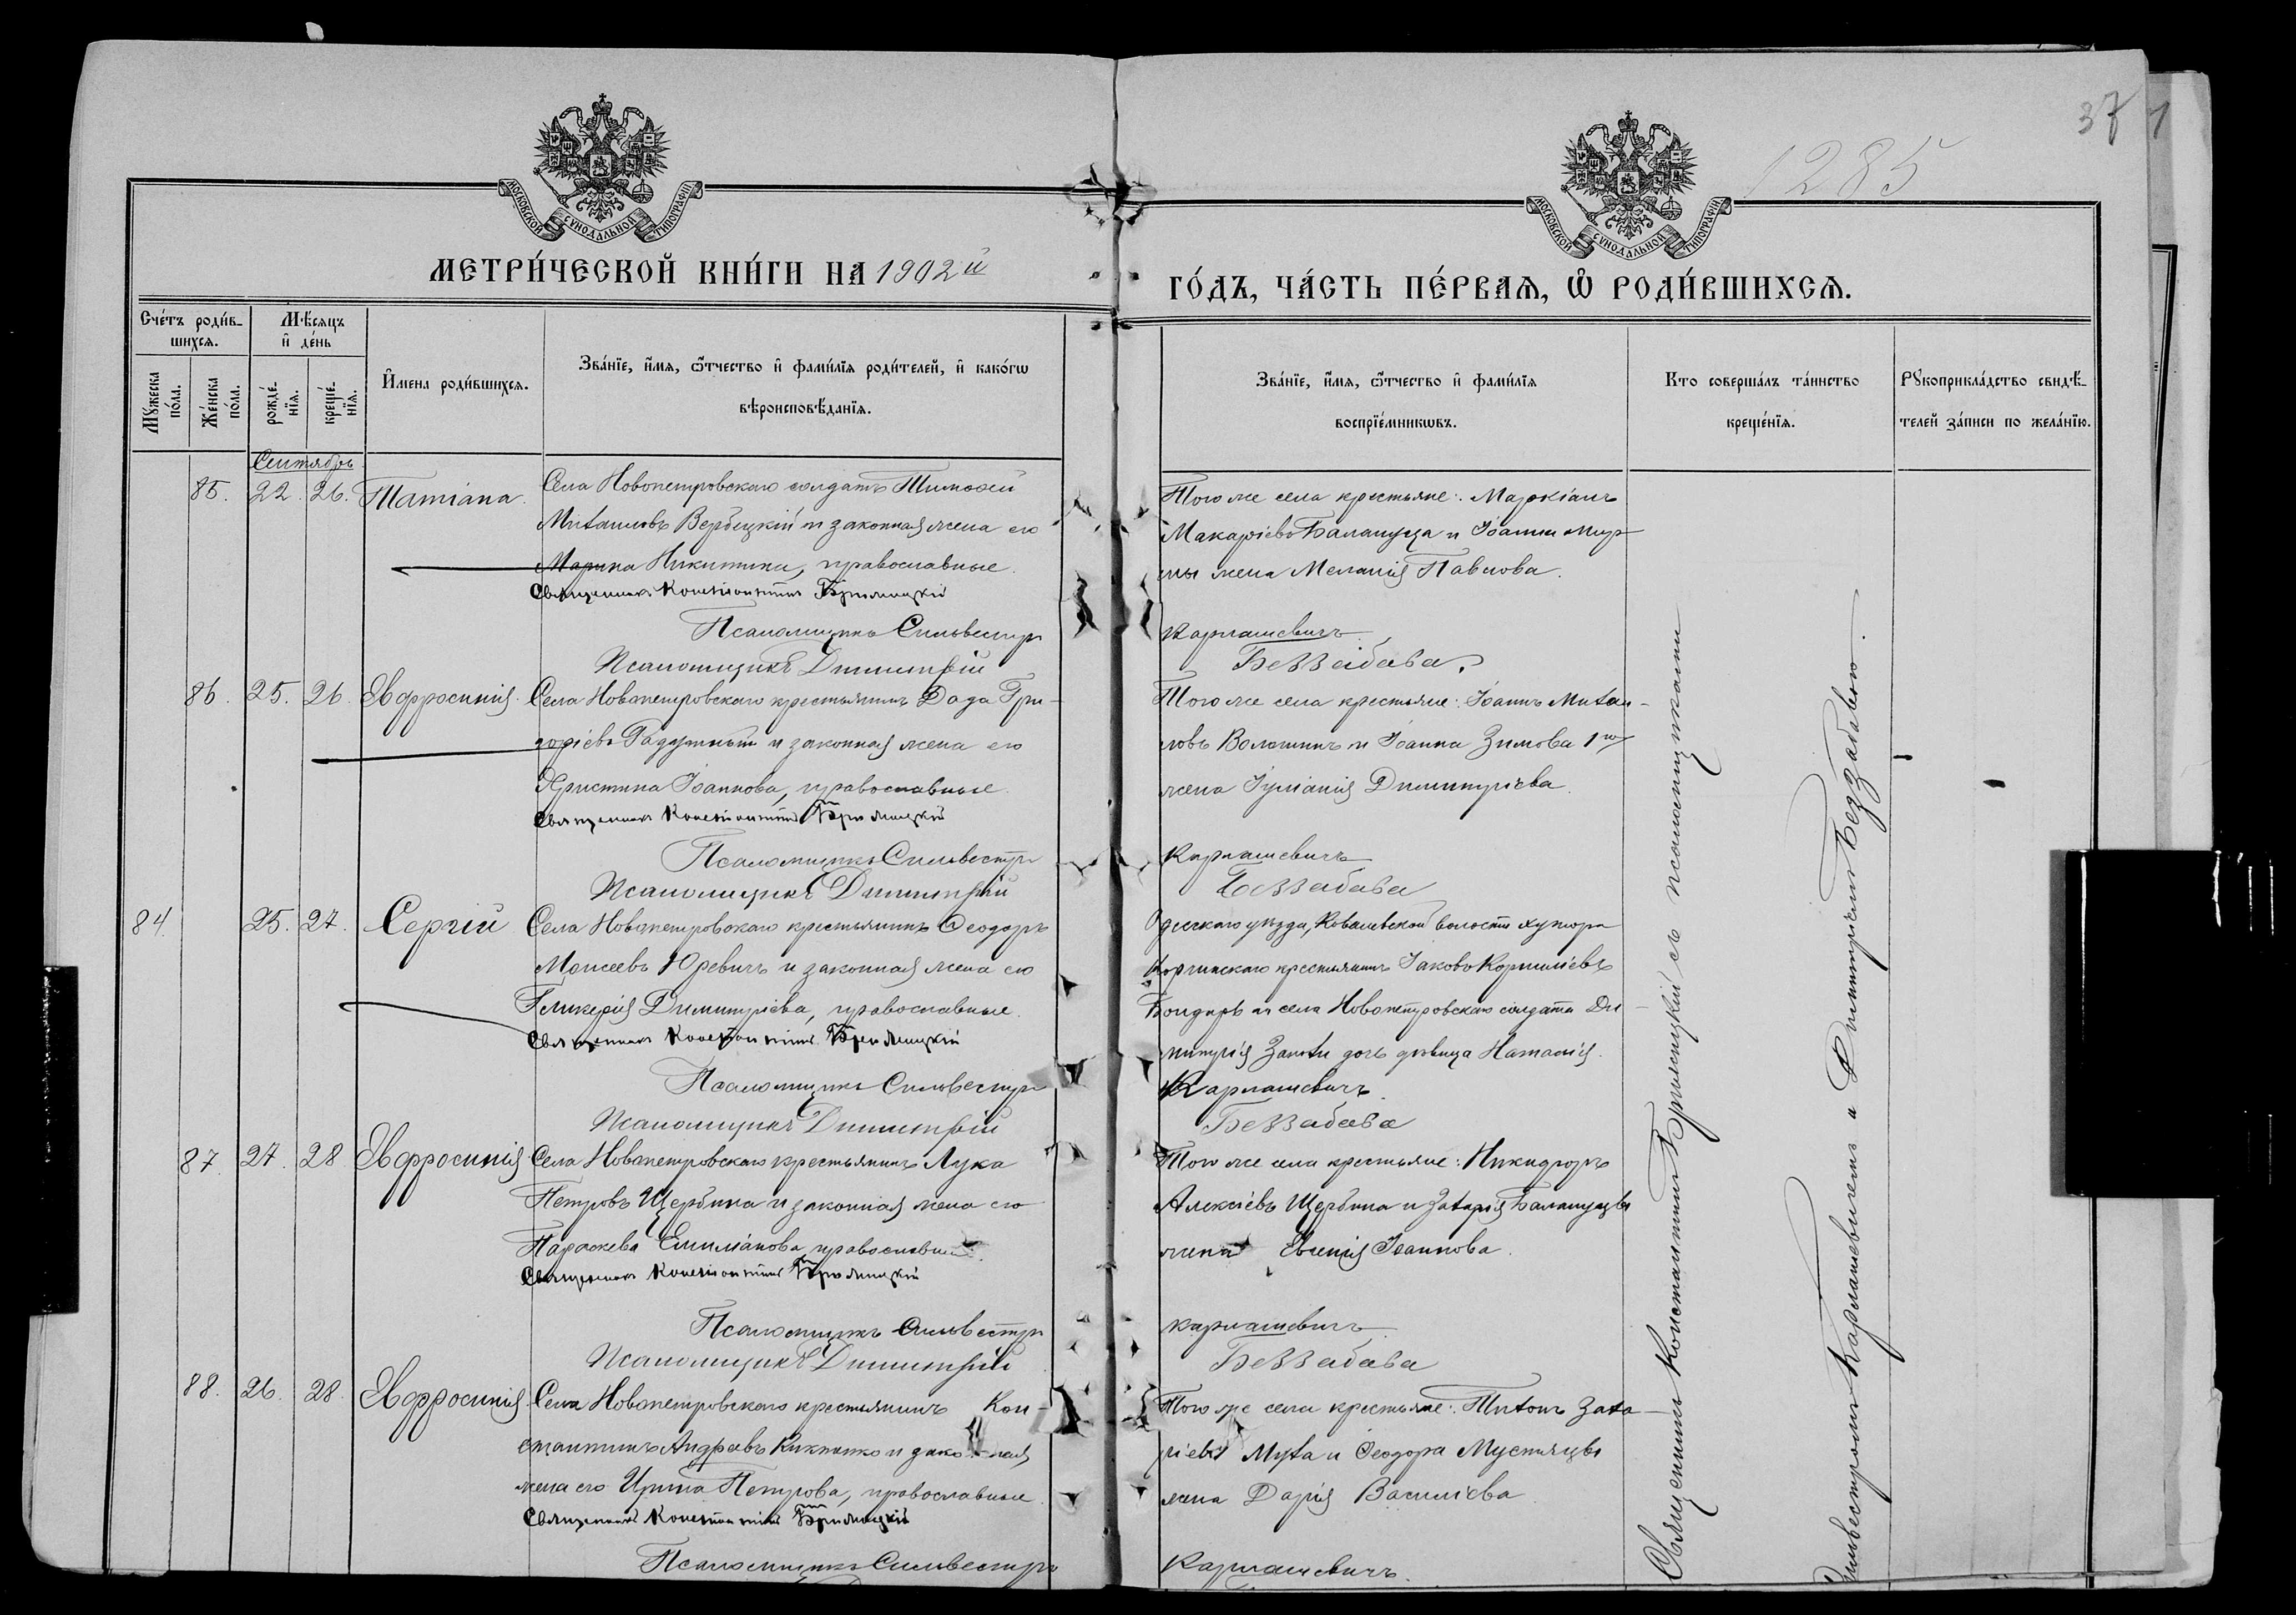 37
1285
МОСКОВСКОЙ СѴНОДАЛЬНОЙ ТИПОГРАФІИ
МОСКОВСКОЙ СѴНОДАЛЬНОЙ ТИПОГРАФІИ
МЕТРИ́ЧЕСКОЙ КНИ́ГИ НА 1902й
ГО́ДЪ, ЧА́СТЬ ПЕ́РВАѦ, Ѡ҆ РОДИ́ВШИХСѦ.
Сче́тъ роди́в-
шихсѧ.
Мꙋ́жеска по́ла.
Же́нска по́ла.
Мѣ́сѧцъ
и҆ де́нь
рожде́-
нїѧ.
креще́-
нїѧ.
И҆мена роди́вшихсѧ.
Зва́нїе, и҆́мѧ, ѻ҆́тчество и҆ фами́лїѧ роди́телей, и҆ како́гѡ
вѣроисповѣ́данїѧ.
Зва́нїе, и҆́мѧ, ѻ҆́тчество и҆ фами́лїѧ
воспрїе́мникѡвъ.
Кто соверша́лъ та́инство
креще́нїѧ.
Рꙋкоприкла́дство свидѣ́-
телей за́писи по жела́нїю.
Сентябрь
85. 22. 26. Татіана.
Села Новопетровскаго солдатъ Тимоѳей
Михаиловъ Вербецкій и законная жена его
Марина Никитина, православные.
Священникъ Константинъ
Псаломщикъ Сильвестръ
Псаломщикъ Димитрій
Того же села крестьяне: Маркіанъ
Макаріевъ Балануца и Іоанна
жена Меланія Павлова.
Карпашевичъ
Беззабава.
86. 25. 26 Евфросинія.
Села Новопетровскаго крестьянинъ Гри-
горіевъ и законная жена его
Христина Іоаннова, православные.
Священникъ Константинъ
Псаломщикъ Сильвестръ
Псаломщикъ Димитрій
Того же села крестьяне: Іоаннъ Михаи-
ловъ Волошинъ и Іоанна Зимова 1го
жена Іуліанія Димитріева.
Карпашевичъ
Беззабава
84. 25. 27. Сергій
Села Новопетровскаго крестьянинъ Ѳеодоръ
Моисеевъ Юревичъ и законная жена его
Гликерія Димитріева, православные.
Священникъ Константинъ
Псаломщикъ Сильвестръ
Псаломщикъ Димитрій
Одесскаго уѣзда, Ковалевской волости хутора
крестьянинъ Іаковъ Корниліевъ
Бондарь и села Новопетровскаго солдата Ди-
митрія дочь дѣвица Наталія.
Карпашевичъ.
Беззабава
87. 27. 28 Евфросинія
Села Новопетровскаго крестьянинъ Лука
Петровъ Щербина и законная жена его
Параскева Емиліанова, православные.
Священникъ Константинъ
Псаломщикъ Сильвестръ
Псаломщикъ Димитрій
Того же села крестьяне: Никифоръ
Алексіевъ Щербина и Захарія Балануцы
жена Евгенія Іоаннова.
Карпашевичъ
Беззабава
88. 26. 28. Евфросинія.
Села Новопетровскаго крестьянинъ Кон-
стантинъ Андреевъ и законная
жена его Ирина Петрова, православные.
Священникъ Константинъ
Псаломщикъ Сильвестръ
Того же села крестьяне: Титъ Заха-
ріевъ Муха и Ѳеодора Мустяцы
жена Дарія Василіева
Карпашевичъ.
Священникъ Константинъ съ псаломщиками
Сильвестромъ Карпашевичемъ и Димитріемъ Беззабавою.